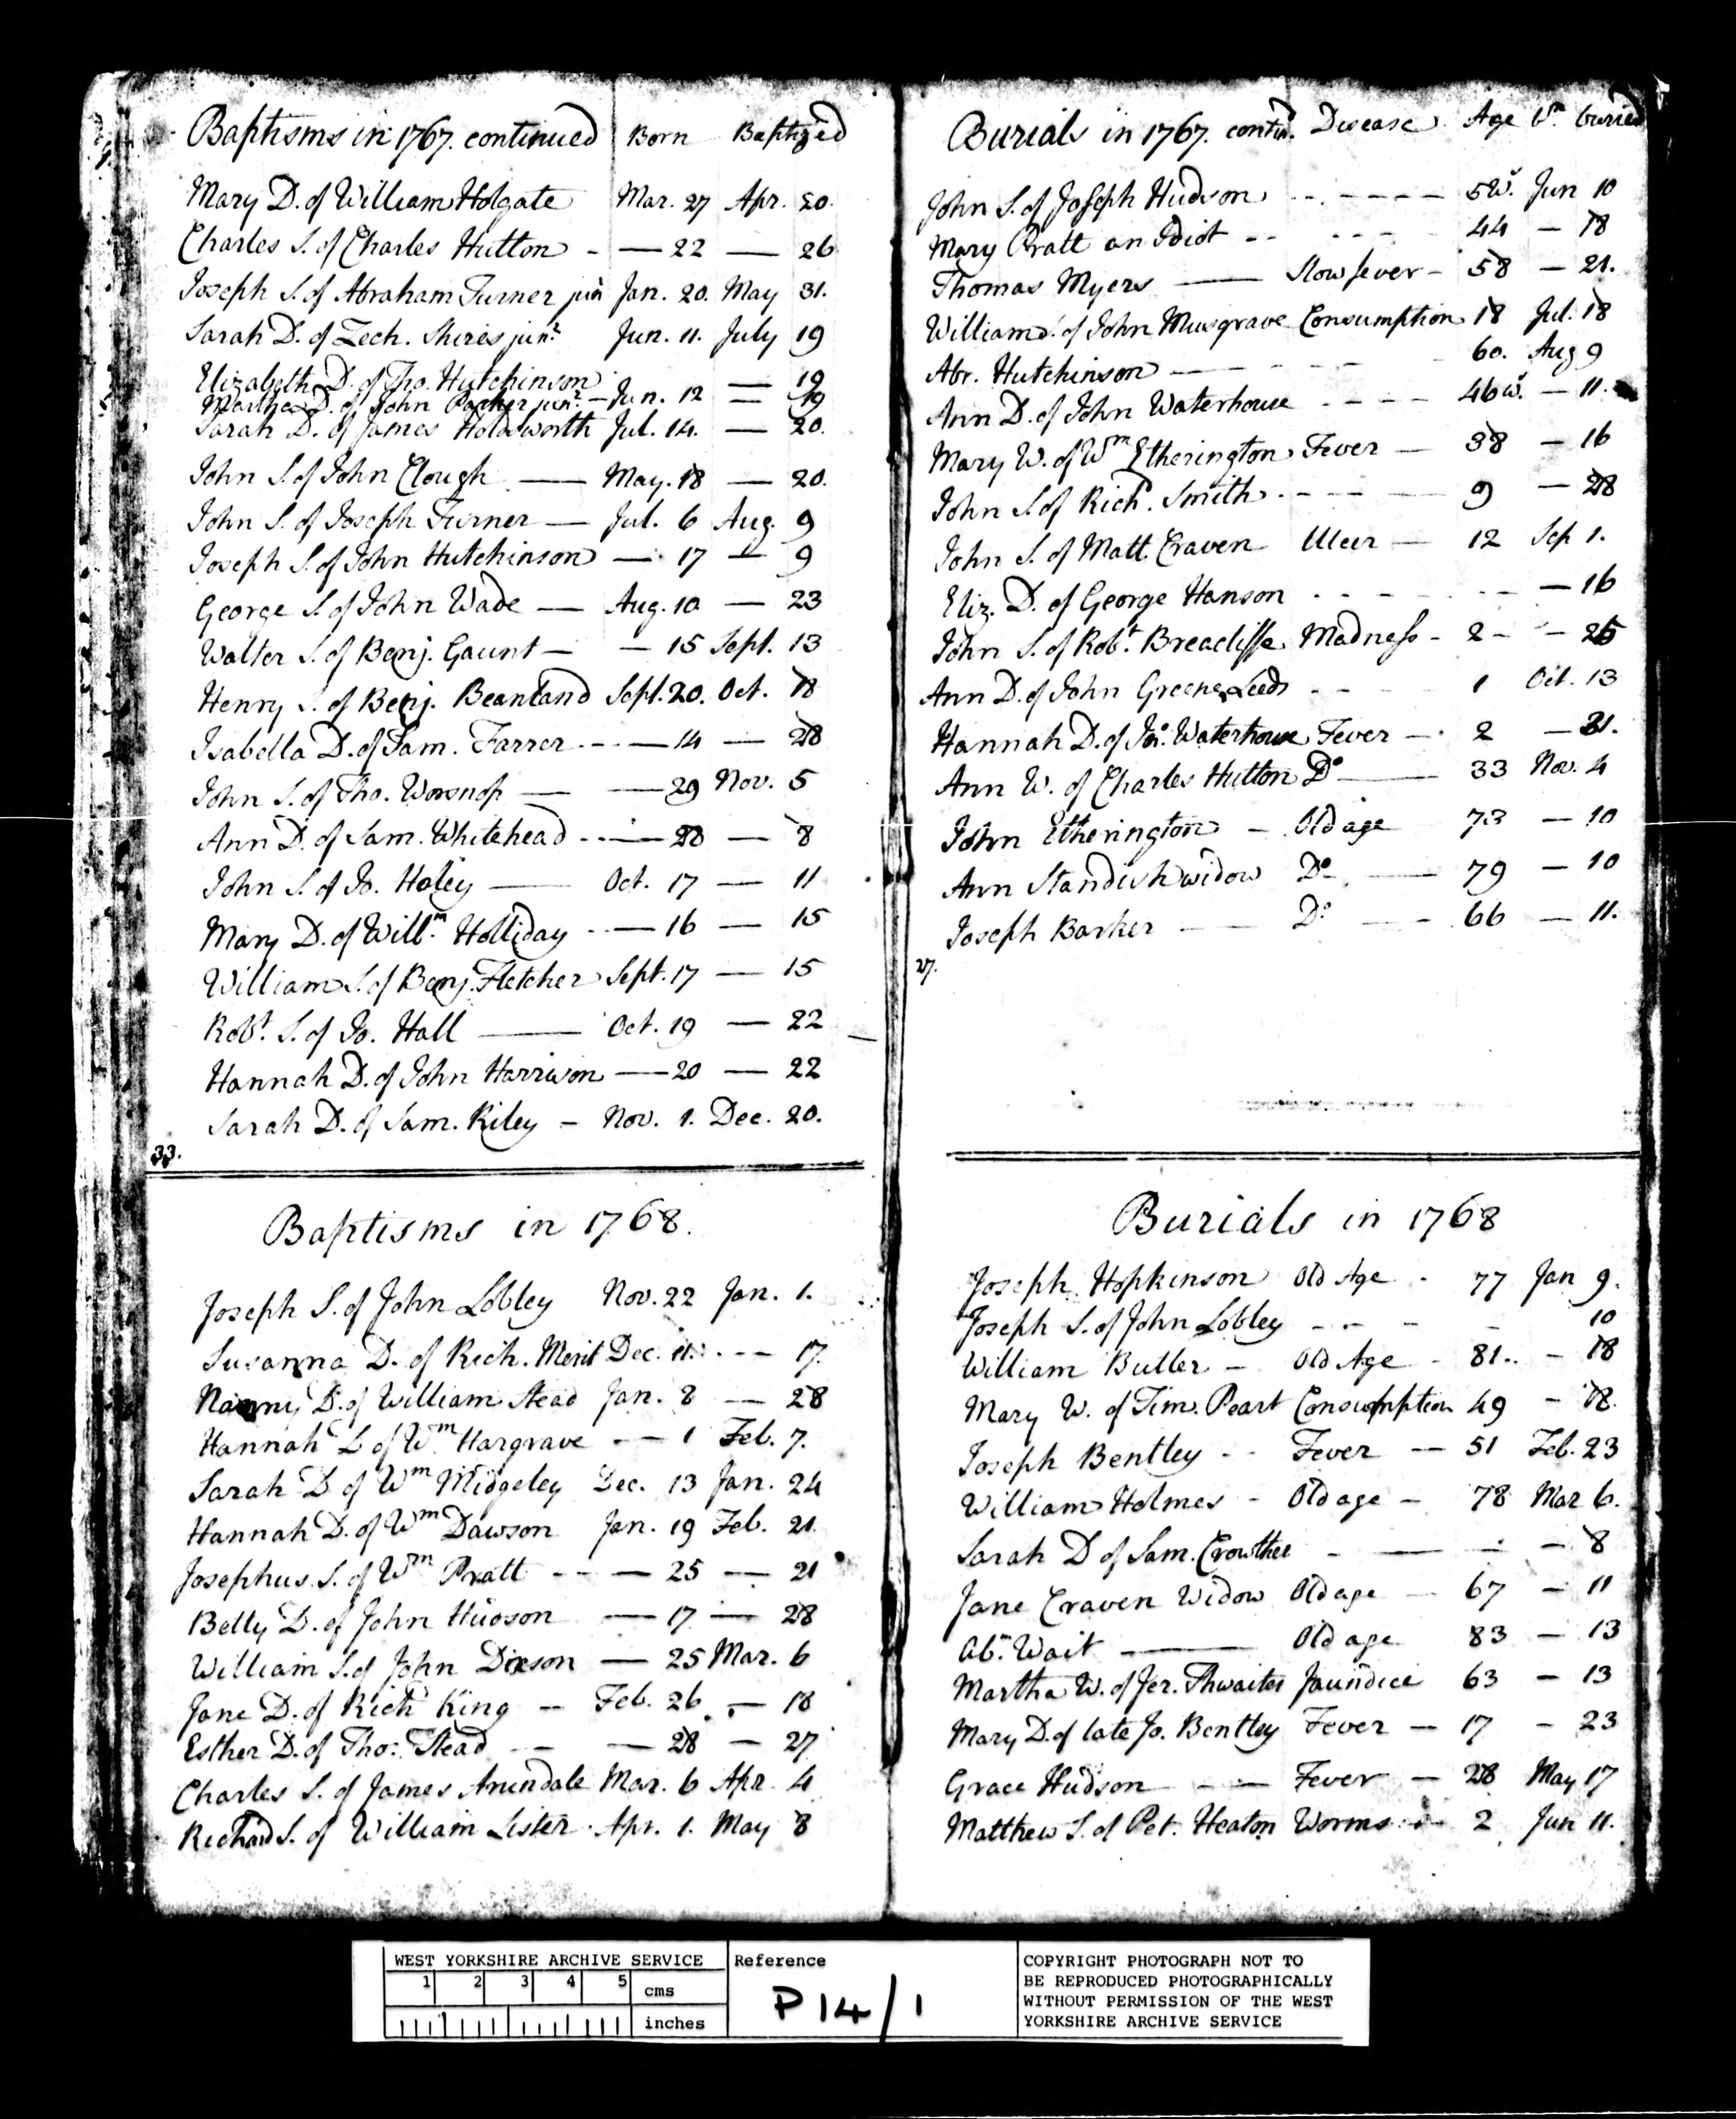 Baptisms in 1767. continued Born Baptized
Mary D. of William Holgate Mar. 27 Apr. 20.
Charles S. of Charles Hutton - — 22 — 26
Joseph S. of Abraham Turner jun Jan. 20. May 31.
Sarah D. of Zech. Shires junr. Jun. 11. July 19
Elizabeth D. of Tho. Hutchinson — 19
Martha D. of John Parker junr. — Jun. 12 — 19
Sarah D. of James Holdsworth Jul. 14. — 20.
John S. of John Clough — May. 18 — 20.
John S. of Joseph Turner — Jul. 6 Aug. 9
Joseph S. of John Hutchinson — 17 — 9
George S. of John Wade — Aug. 10 — 23
Walter S. of Benj. Gaunt — — 15 Sept. 13
Henry S. of Benj. Beanland Sept. 20. Oct. 18
Isabella D. of Sam. Farrer - - — 14 — 28
John S. of Tho. Worsnop — — 29 Nov. 5
Ann D. of Sam. Whitehead - - — 28 — 8
John S. of Jo. Haley — Oct. 17 — 11
Mary D. of Willm. Holliday - - — 16 — 15
William S. of Benj. Fletcher Sept. 17 — 15
Robt. S. of Jo. Hall — Oct. 19 — 22
Hannah D. of John Harrison — 20 — 22
Sarah D. of Sam. Riley - Nov. 1. Dec. 20.
33.
Baptisms in 1768.
Joseph S. of John Lobley Nov. 22 Jan. 1.
Susanna D. of Rich. Merit Dec. 11. - - - 17.
Nanny D. of William Stead Jan. 8 — 28
Hannah D of Wm. Hargrave - — 1 Feb. 7.
Sarah D of Wm Midgeley Dec. 13 Jan. 24
Hannah D. of Wm Dawson Jan. 19 Feb. 21.
Josephus S. of Wm Pratt - - — 25 — 21
Betty D. of John Hudson — 17 — 28
William S. of John Dixson — 25 Mar. 6
Jane D. of Richd King — Feb. 26. — 18
Esther D. of Tho: Stead - - — 28 — 27
Charles S. of James Arundale Mar. 6 Apr. 4
Richard S. of William Lister - Apr. 1. May 8
Burials in 1767. contin. Disease. Age Wn. buried
John S. of Joseph Hudson - - - - - - 5 Ws. Jun 10
Mary Pratt an Idiot - - - - - 44 — 18
Thomas Myers — Slow fever - 58 — 21.
William S. of John Musgrave Consumption 18 Jul. 18
Abr. Hutchinson — - - - 60. Aug 9
Ann D. of John Waterhouse - - - - 46 ws. — 11.
Mary W. of Wm Etherington Fever — 38 — 16
John S. of Richd. Smith - - - - 9 — 28
John S. of Matt. Craven Ulcer — 12 Sep 1.
Eliz. D. of George Hanson - - - - - — 16
John S. of Robt. Breacliffe Madness - 2 - - 25
Ann D. of John Greene, Leeds - - - 1 Oct. 13
Hannah D. of Jno. Waterhouse Fever — 2 — 31.
Ann W. of Charles Hutton Do — 33 Nov. 4
John Etherington - Old age 73 — 10
Ann Standish widow Do — 79 — 10
Joseph Barker — Do — 66 — 11.
27.
Burials in 1768
Joseph Hopkinson Old Age - 77 Jan 9.
Joseph S. of John Lobley - - - - 10
William Butler - Old Age - 81.. - 18
Mary W. of Tim. Peart Consumption 49 - 18.
Joseph Bentley - - Fever — 51 Feb. 23
William Holmes - Old age - 78 Mar 6.
Sarah D of Sam. Crowther - — - - 8
Jane Craven Widow Old age — 67 — 11
Abm. Wait — Old age 83 — 13
Martha W. of Jer. Thwaites Jaundice 63 — 13
Mary D. of late Jo. Bentley Fever — 17 - 23
Grace Hudson — — Fever — 28 May 17
Matthew S. of Pet. Heaton Worms - - 2 Jun 11.
WEST YORKSHIRE ARCHIVE SERVICE
1 2 3 4 5 cms
inches
Reference
P14/1
COPYRIGHT PHOTOGRAPH NOT TO
BE REPRODUCED PHOTOGRAPHICALLY
WITHOUT PERMISSION OF THE WEST
YORKSHIRE ARCHIVE SERVICE